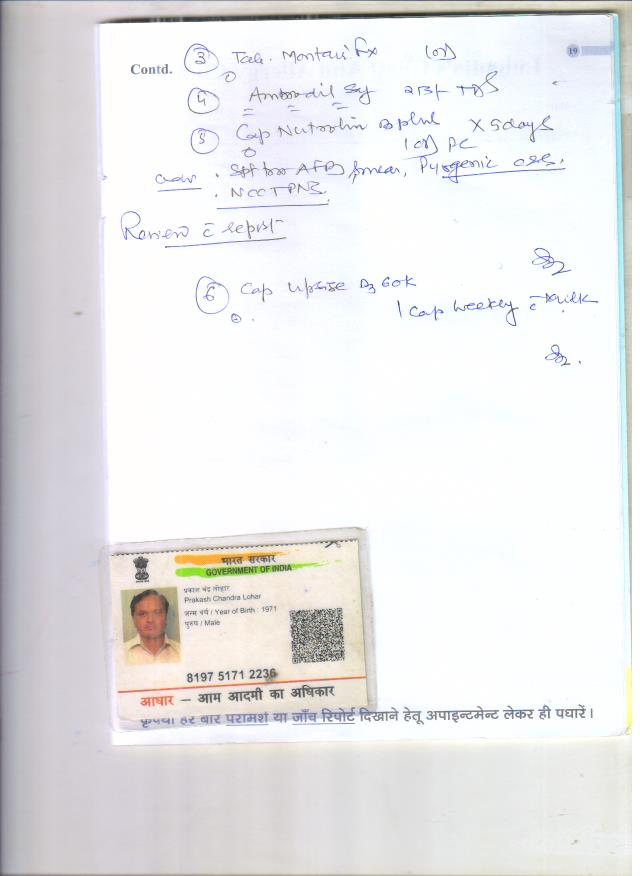 19
Contd. 3 Tab. Montair Fx (OD)
4 Ambrodil Sy 2 TDS
5 Cap Nutrolin B plus x 5 days
1 OD PC
adv . Sputum for AFB smear, Pyogenic c&s.
. NCCT PNS
Review c̄ report
6 Cap Uprise D3 60K
1 Cap weekly c̄ milk
भारत सरकार
GOVERNMENT OF INDIA
प्रकाश चंद्र लोहार
Prakash Chandra Lohar
जन्म वर्ष / Year of Birth : 1971
पुरुष / Male
8197 5171 2236
आधार – आम आदमी का अधिकार
कृपया हर बार परामर्श या जाँच रिपोर्ट दिखाने हेतू अपाइन्टमेन्ट लेकर ही पधारें।